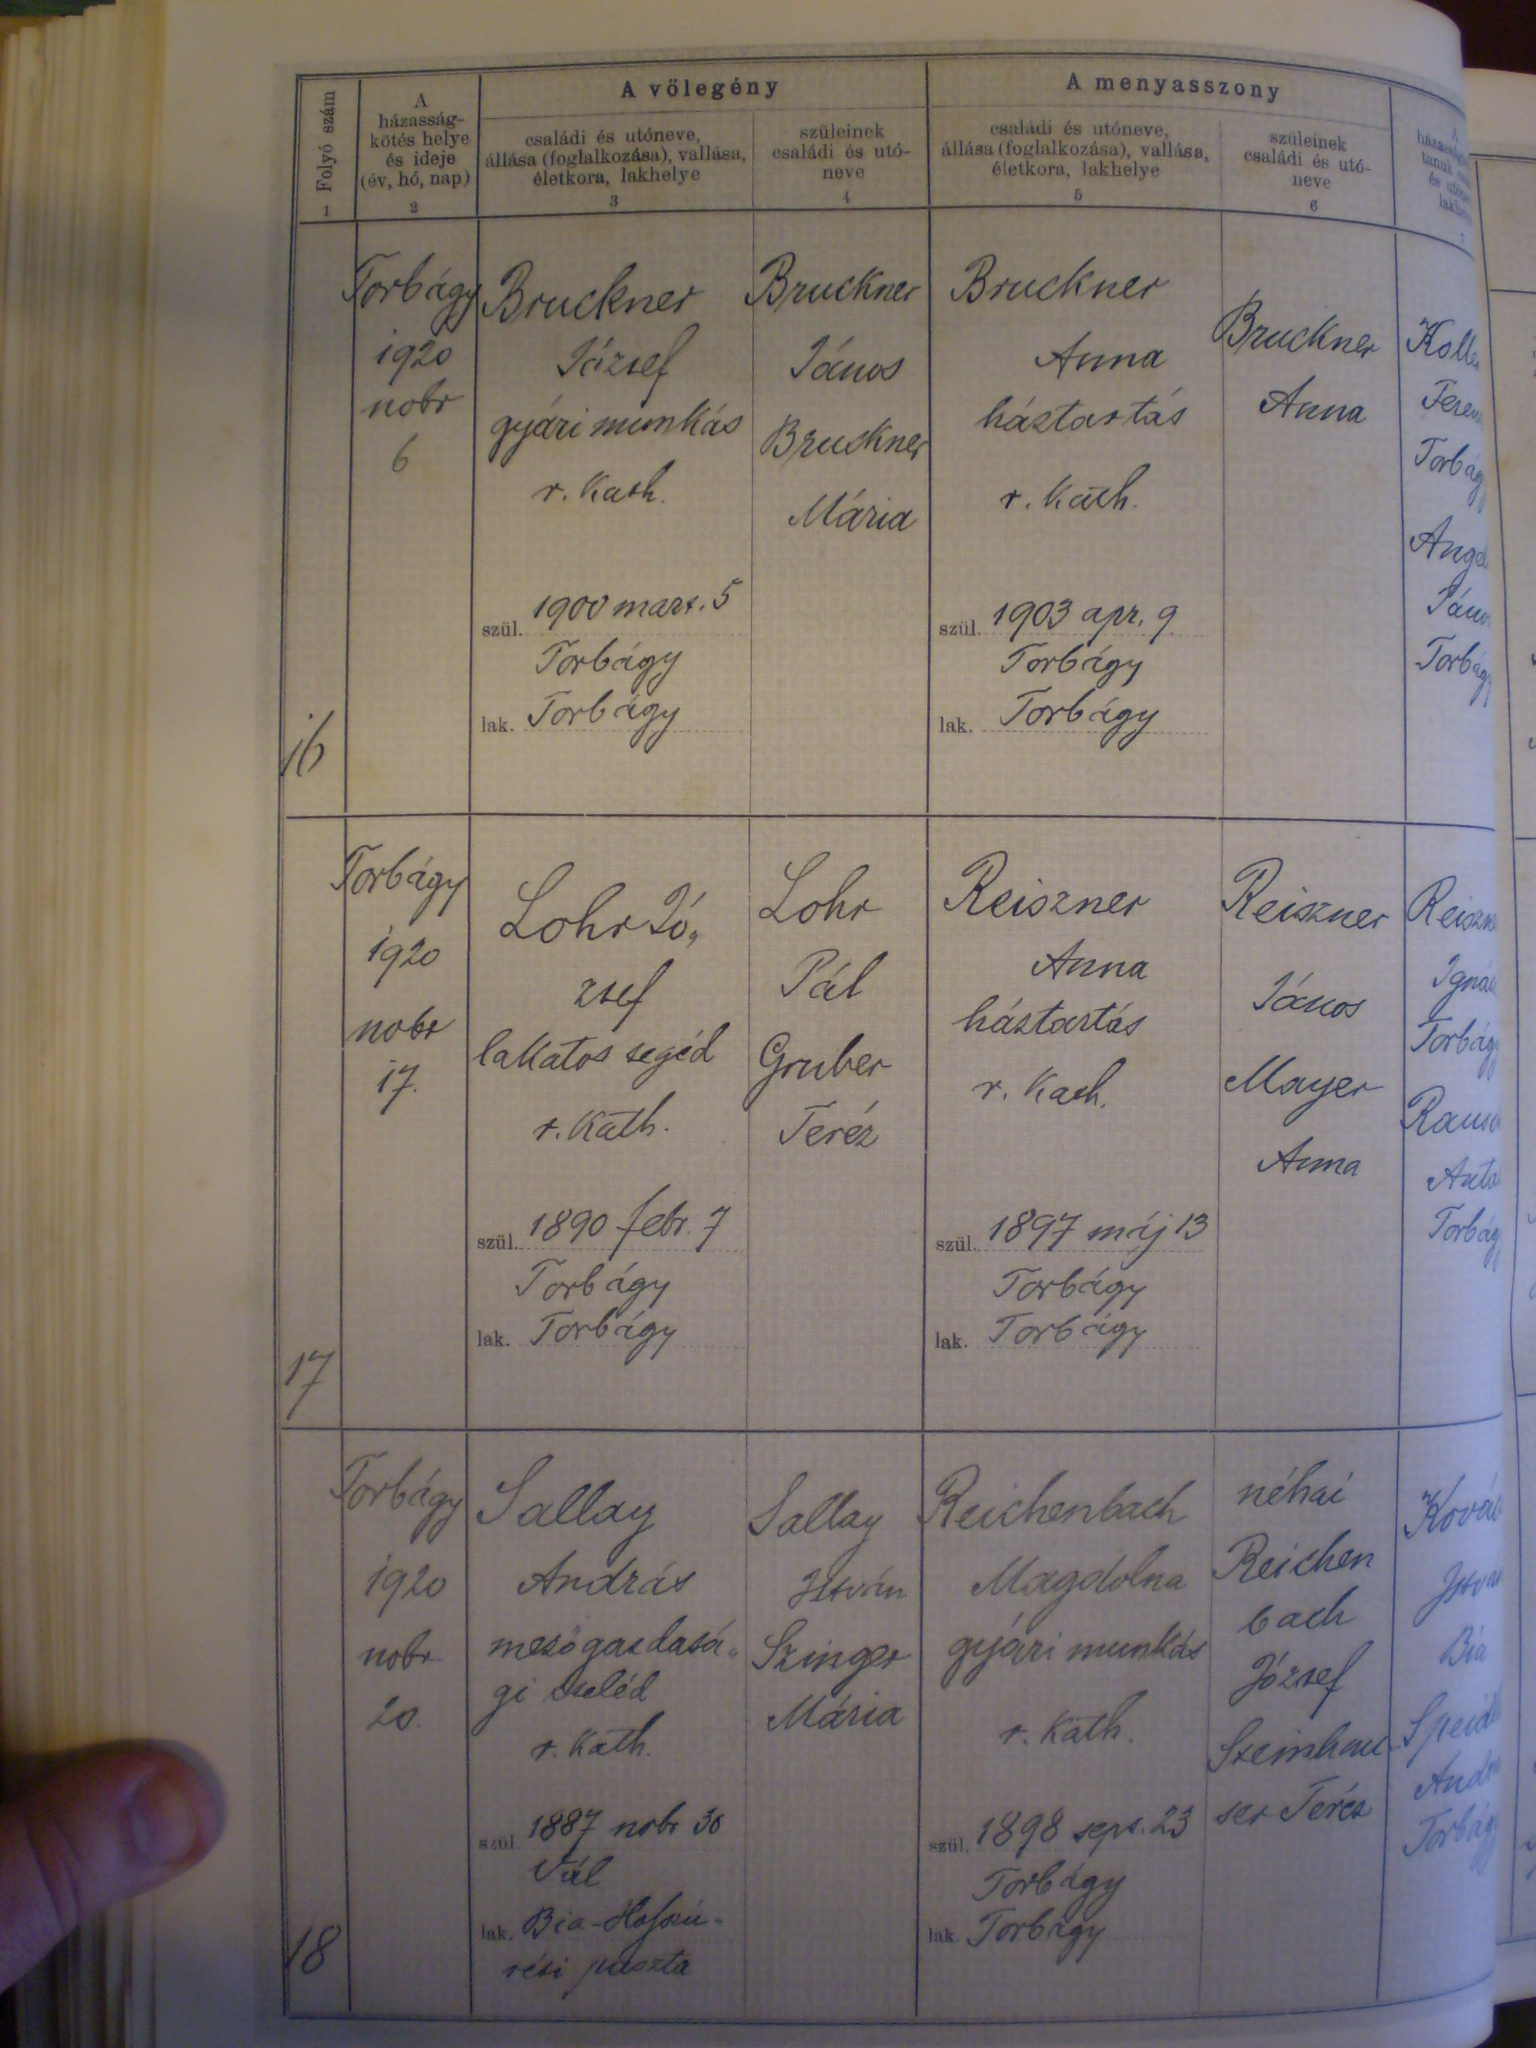 A vőlegény
A menyasszony
Folyó szám
A
házasság-
kötés helye
és ideje
(év, hó, nap)
családi és utóneve,
állása (foglalkozása), vallása,
életkora, lakhelye
szüleinek
családi és utó-
neve
családi és utóneve,
állása (foglalkozása), vallása,
életkora, lakhelye
szüleinek
családi és utó-
neve
1
2
3
4
5
6
7
16
Torbágy
1920
nobr
6
Bruckner
József
gyári munkás
r. Kath.
szül. 1900 mart. 5
Torbágy
lak. Torbágy
Bruckner
János
Bruckner
Mária
Bruckner
Anna
háztartás
r. Kath.
szül. 1903 apr. 9
Torbágy
lak. Torbágy
Bruckner
Anna
Torbágy
János
Torbágy
17
Torbágy
1920
nobr
17.
Lohr Jó„
zsef
lakatos segéd
r. Kath.
szül. 1890 febr. 7
Torbágy
lak. Torbágy
Lohr
Pál
Gruber
Teréz
Reiszner
Anna
háztartás
r. Kath.
szül. 1897 máj 13
Torbágy
lak. Torbágy
Reiszner
János
Mayer
Anna
Torbágy
Torbágy
18
Torbágy
1920
nobr
20.
Sallay
András
mezőgazdasá„
gi cseléd
r. Kath.
szül. 1887 nobr 30
Vál
lak. Bia-Hosszú„
réti puszta
Sallay
István
Szinger
Mária
Reichenbach
Magdolna
gyári munkás
r. Kath.
szül. 1898 sept. 23
Torbágy
lak. Torbágy
néhai
Reichen
bach
József
Steinhau
ser Teréz
Bia
Torbágy